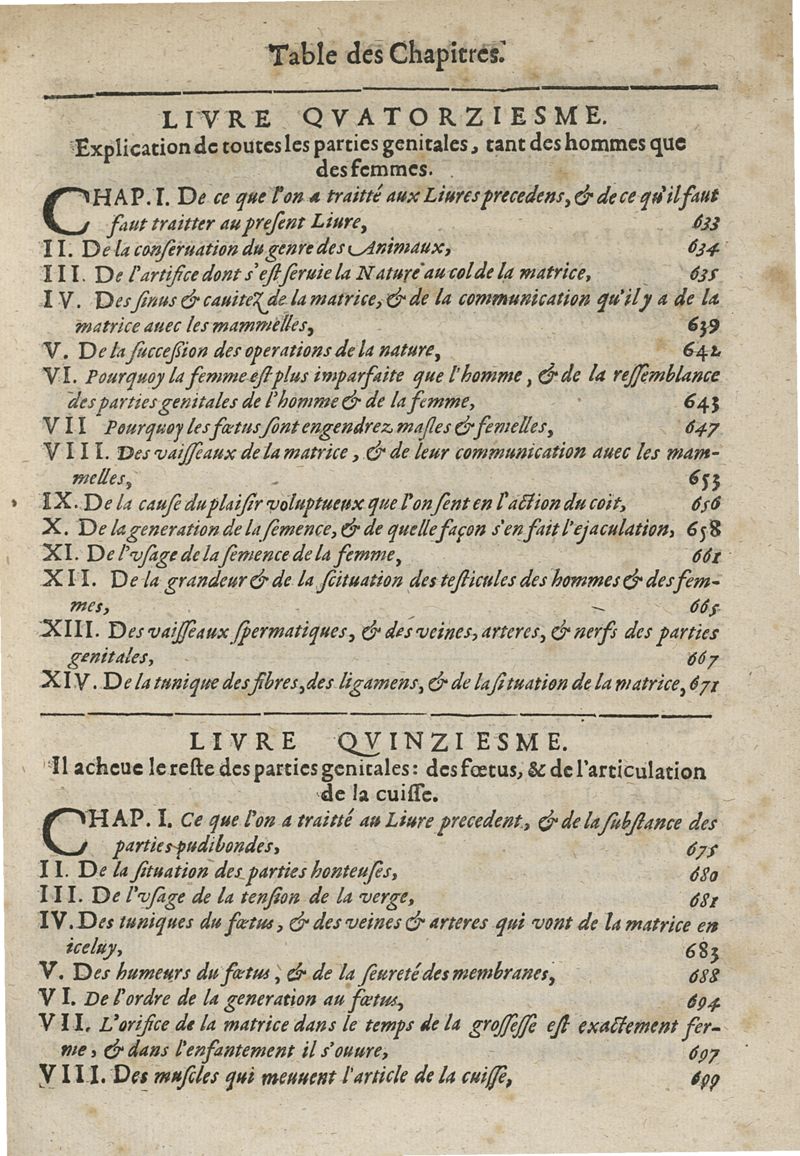 Table des Chapitres.
LIVRE QVATORZIESME.
Explication de toutes les parties genitales, tant des hommes que
des femmes.
CHAP. I. De ce que l'on a traitté aux Liures precedens, & de ce qu'il faut
faut traitter au preſent Liure, 633
II. De la conſeruation du genre des Animaux, 634
III. De l'artifice dont s'eſt ſeruie la Nature au col de la matrice, 635
IV. Des ſinus & cauitez de la matrice, & de la communication qu'il y a de la
matrice auec les mammelles, 639
V. De la ſucceſſion des operations de la nature, 642
VI. Pourquoy la femme eſt plus imparfaite que l'homme, & de la reſſemblance
des parties genitales de l'homme & de la femme, 643
VII Pourquoy les fœtus ſont engendrez maſles & femelles, 647
VIII. Des vaiſſeaux de la matrice, & de leur communication auec les mam-
melles, 653
IX. De la cauſe du plaiſir voluptueux que l'on ſent en l'action du coit, 656
X. De la generation de la ſemence, & de quelle façon s'en fait l'ejaculation, 658
XI. De l'vſage de la ſemence de la femme, 661
XII. De la grandeur & de la ſcituation des teſticules des hommes & des fem-
mes, 665
XIII. Des vaiſſeaux ſpermatiques, & des veines, arteres, & nerfs des parties
genitales, 667
XIV. De la tunique des fibres, des ligamens, & de la ſituation de la matrice, 671
LIVRE QVINZIESME.
Il acheue le reſte des parties genitales: des fœtus, & de l'articulation
de la cuiſſe.
CHAP. I. Ce que l'on a traitté au Liure precedent, & de la ſubſtance des
parties pudibondes, 675
II. De la ſituation des parties honteuſes, 680
III. De l'vſage de la tenſion de la verge, 681
IV. Des tuniques du fœtus, & des veines & arteres qui vont de la matrice en
iceluy, 683
V. Des humeurs du fœtus, & de la ſeureté des membranes, 688
VI. De l'ordre de la generation au fœtus, 694
VII. L'orifice de la matrice dans le temps de la groſſeſſe eſt exactement fer-
me, & dans l'enfantement il s'ouure, 697
VIII. Des muſcles qui meuuent l'article de la cuiſſe, 699